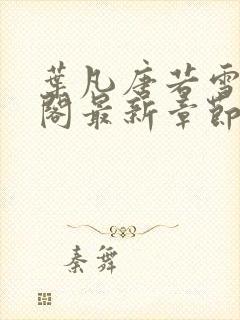 葉凡唐若雪
閣最新章節
秦舞